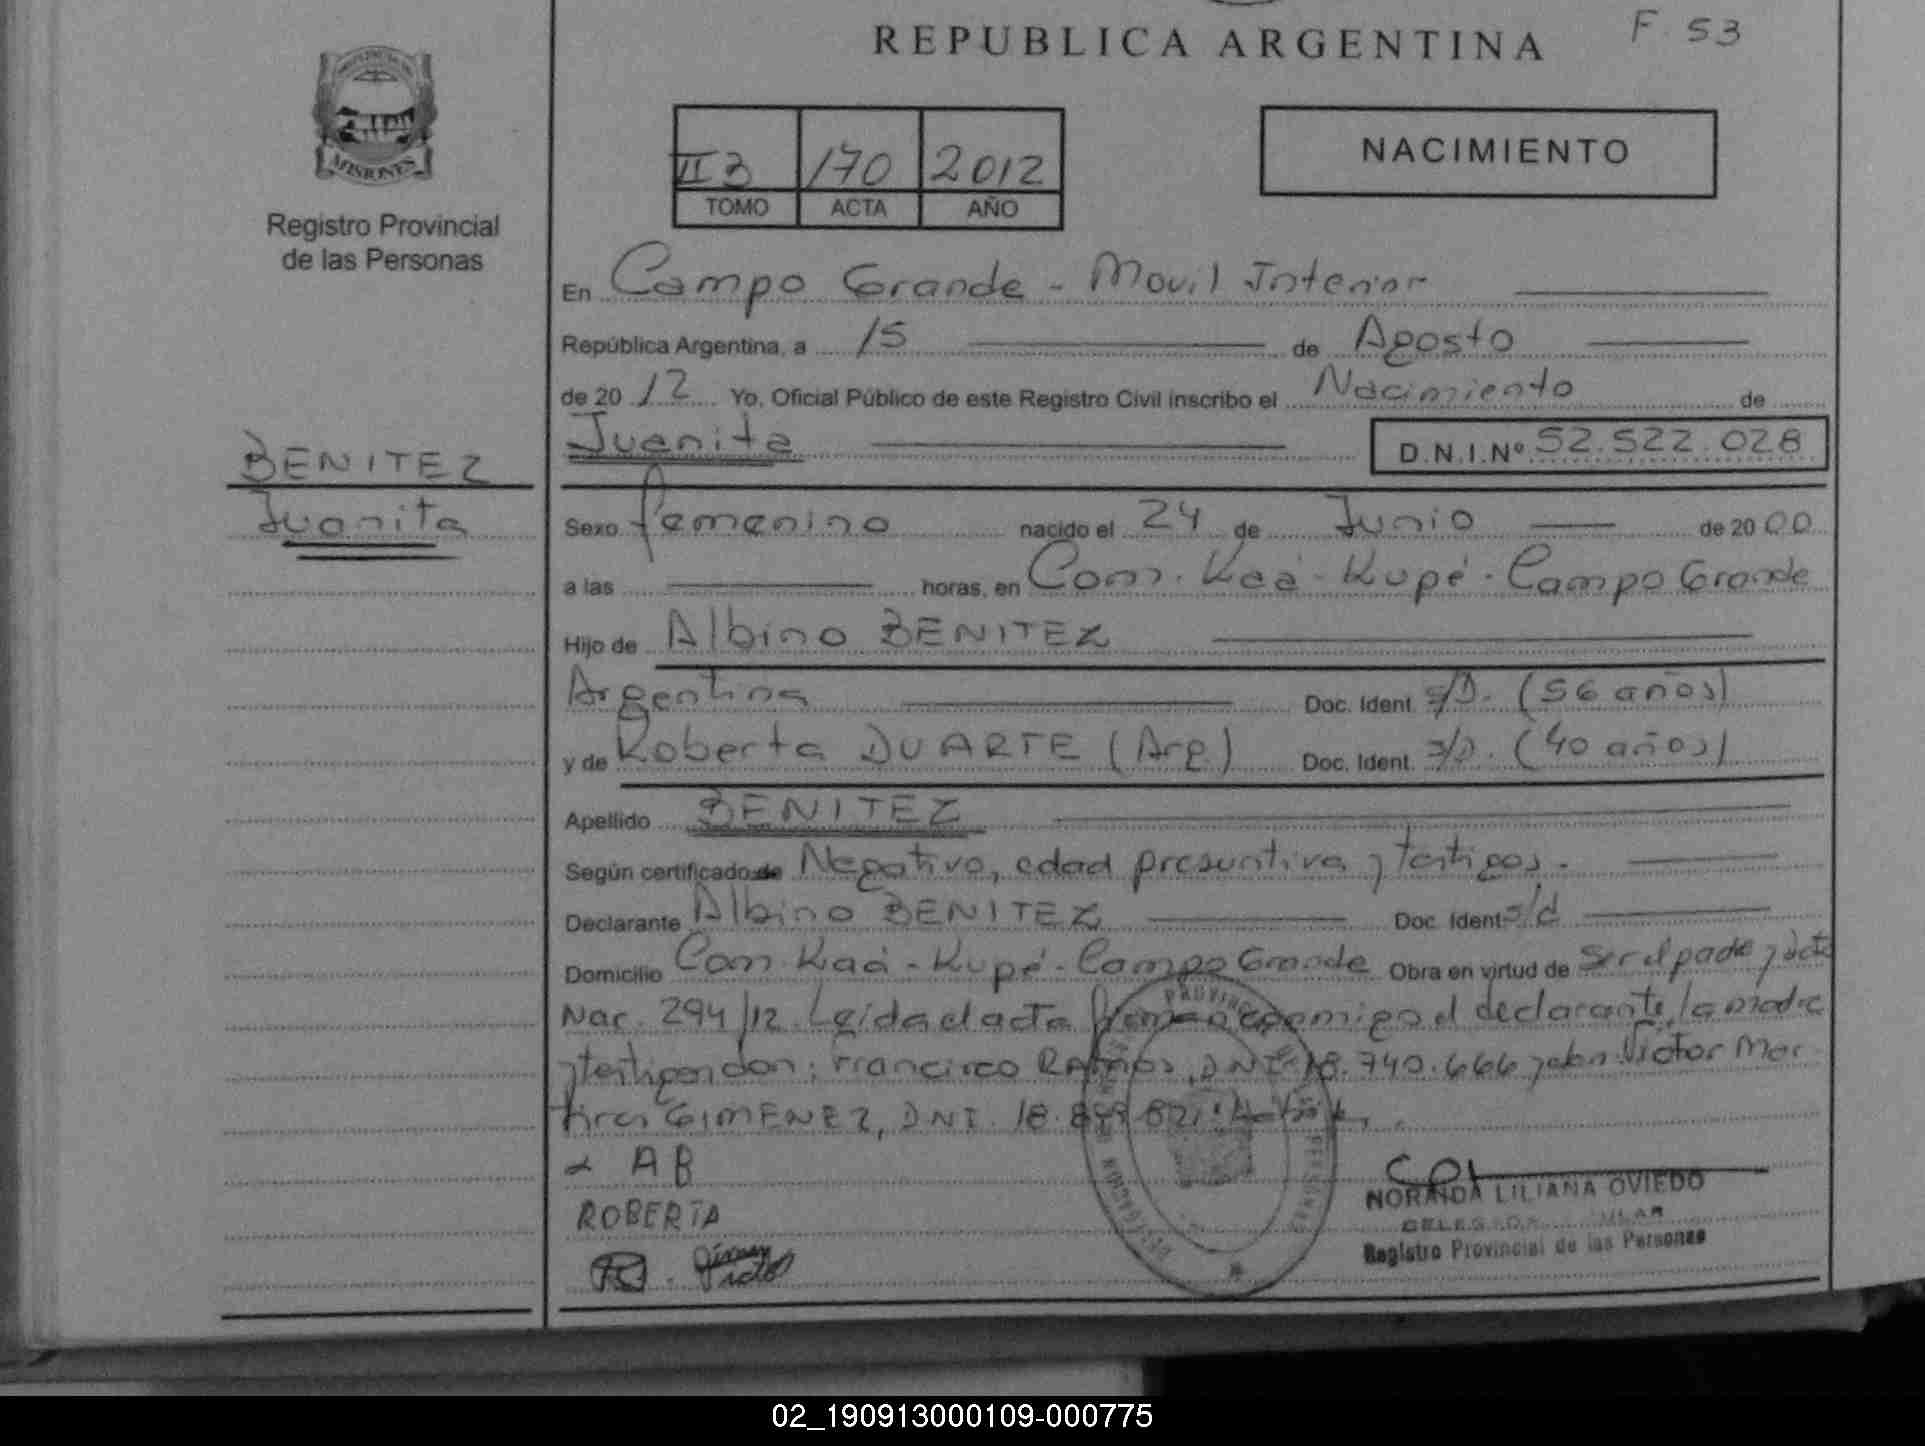 F. 53
REPUBLICA ARGENTINA
MISIONES
Registro Provincial
de las Personas
II 3 170 2012
TOMO ACTA AÑO
NACIMIENTO
En Campo Grande - Movil Interior
República Argentina, a 15 de Agosto
de 2012 Yo, Oficial Público de este Registro Civil inscribo el Nacimiento de
Juanita D.N.I.Nº 52.522.028
BENITEZ
Juanita
Sexo femenino nacido el 24 de Junio de 2000
a las horas, en Com. Kaá - Kupé - Campo Grande
Hijo de Albino BENITEZ
Argentina Doc. Ident. s/D. (56 años)
y de Roberta DUARTE (Arg.) Doc. Ident. s/D. (40 años)
Apellido BENITEZ
Según certificado de Negativo, edad presuntiva y testigos.
Declarante Albino BENITEZ Doc. Ident. s/d
Domicilio Com. Kaá - Kupé - Campo Grande Obra en virtud de Ser el padre y
Nac. 294/12. Leída el acta conmigo el declarante, la madre
y testigos don: Francisco RAMOS, DNI 18.740.666 y don Victor Mar
tires GIMENEZ, DNI. 18.
AB
ROBERTA
NORAIDA LILIANA OVIEDO
Registro Provincial de las Personas
02_190913000109-000775